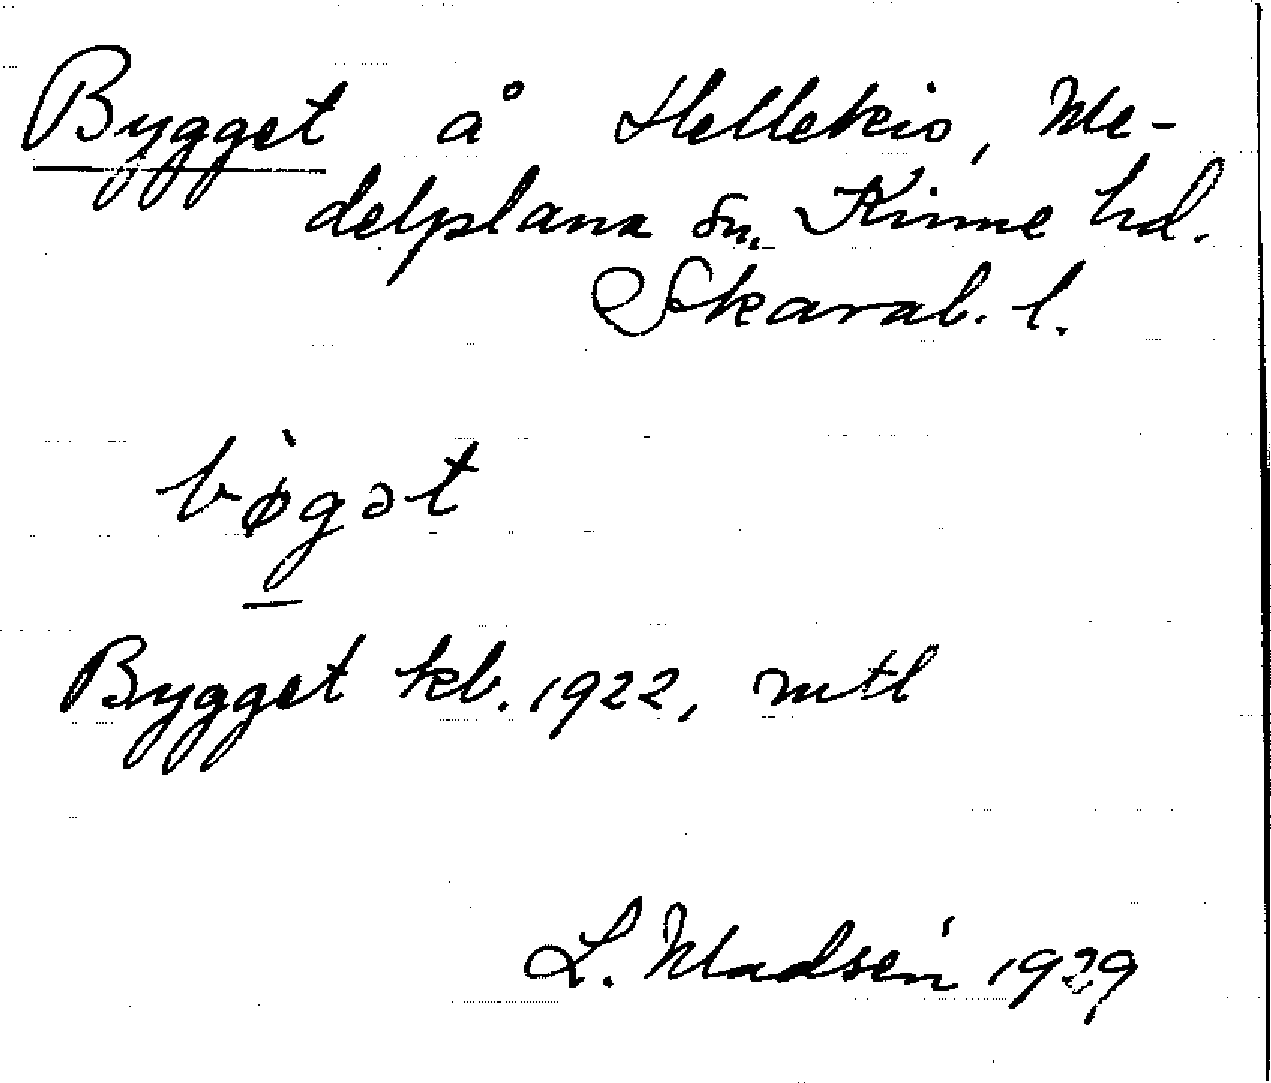 Bygget å Hellekis, Me-
delplana sn, Kinne hd.
Skarab. l.
bø̀gət
Bygget kb. 1922, mtl
L. Madsén 1929